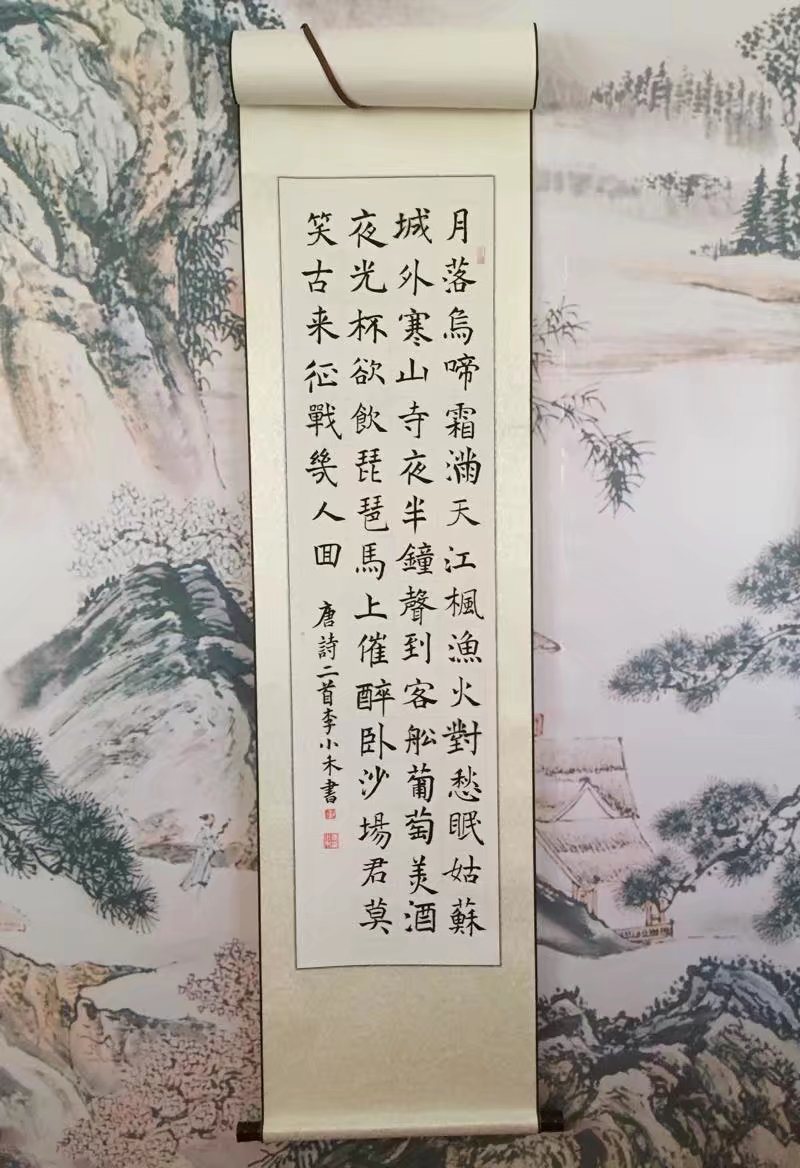 月落烏啼霜滿天江楓漁火對愁眠姑蘇
城外寒山寺夜半鐘聲到客舩葡萄美酒
夜光杯欲飲琵琶馬上催醉卧沙場君莫
笑古来征戰幾人回
唐詩二首李小未書